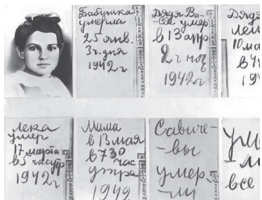 Бабушка
умерла
25 янв.
3ч. дня
1942г
Дядя Ва-
умер
в 13 апр
2ч ноч
1942г
Дядя
10 мая
в 4
194
Лека
умер
17 марта
в 5 час утр
1942г
Мама
в 13 мая
в 7 30
час
утра
1942
Савиче-
вы
умер-
ли
ум
все